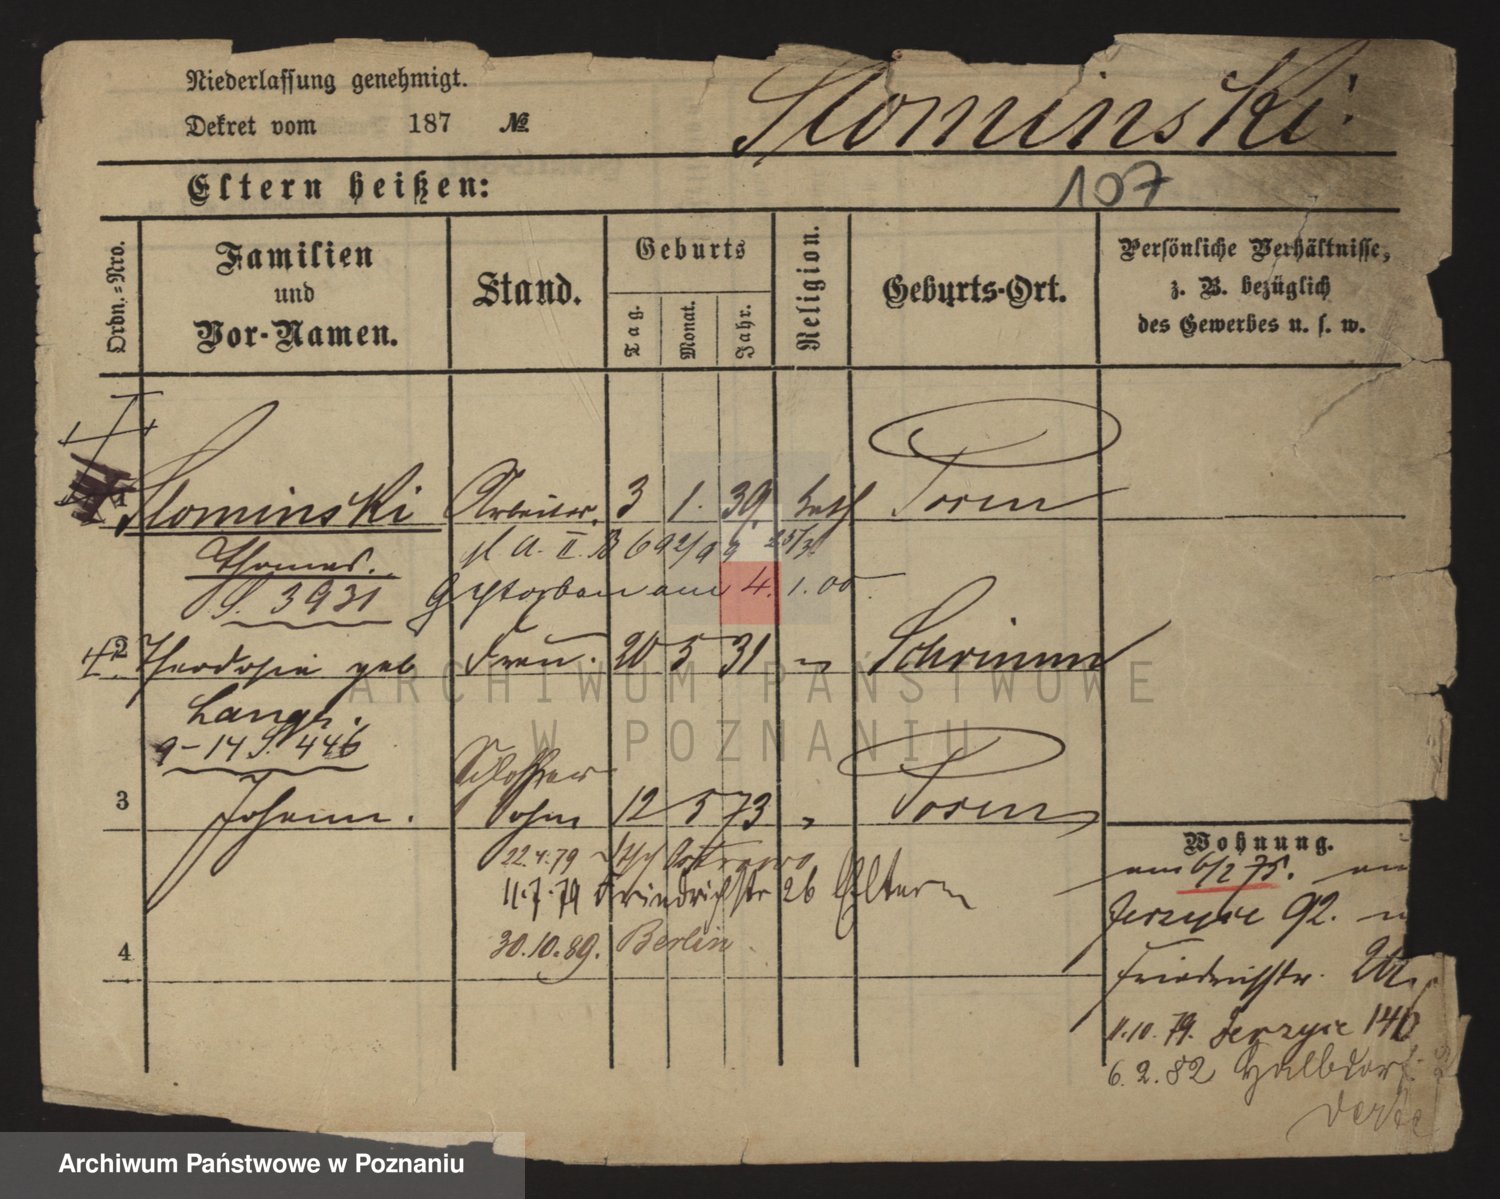 Niederlassung genehmigt.
Dekret vom 187 №
Slominski.
Eltern heißen:
107
Ordn.-Nro.
Familien
und
Vor-Namen.
Stand.
Geburts
Tag.
Monat.
Jahr.
Religion.
Geburts-Ort.
Persönliche Verhältnisse,
z. B. bezüglich
des Gewerbes u. s. w.
1 Slominski Arbeiter. 3 1. 39. kath Posen
Thomas. A. II. B 692/99 25/3.
S. 3931 Gestorben am 4. 1. 00.
2 Theodosia geb Frau. 20 5 31 " Schrimm
Lange.
9-14 S. 446
Schlosser
3 Johann. Sohn 12 5 73 " Posen
22.4.79 Ostrowo
11.7.79 Friedrichstr 26 Eltern
4 30.10.89. Berlin.
Wohnung.
am 6/2 75.
Jerzyce 92.
Friedrichstr. 26.
11.10.79. Jerzyce 140
6.2.82 Halbdorf
ARCHIWUM PAŃSTWOWE
W POZNANIU
Archiwum Państwowe w Poznaniu